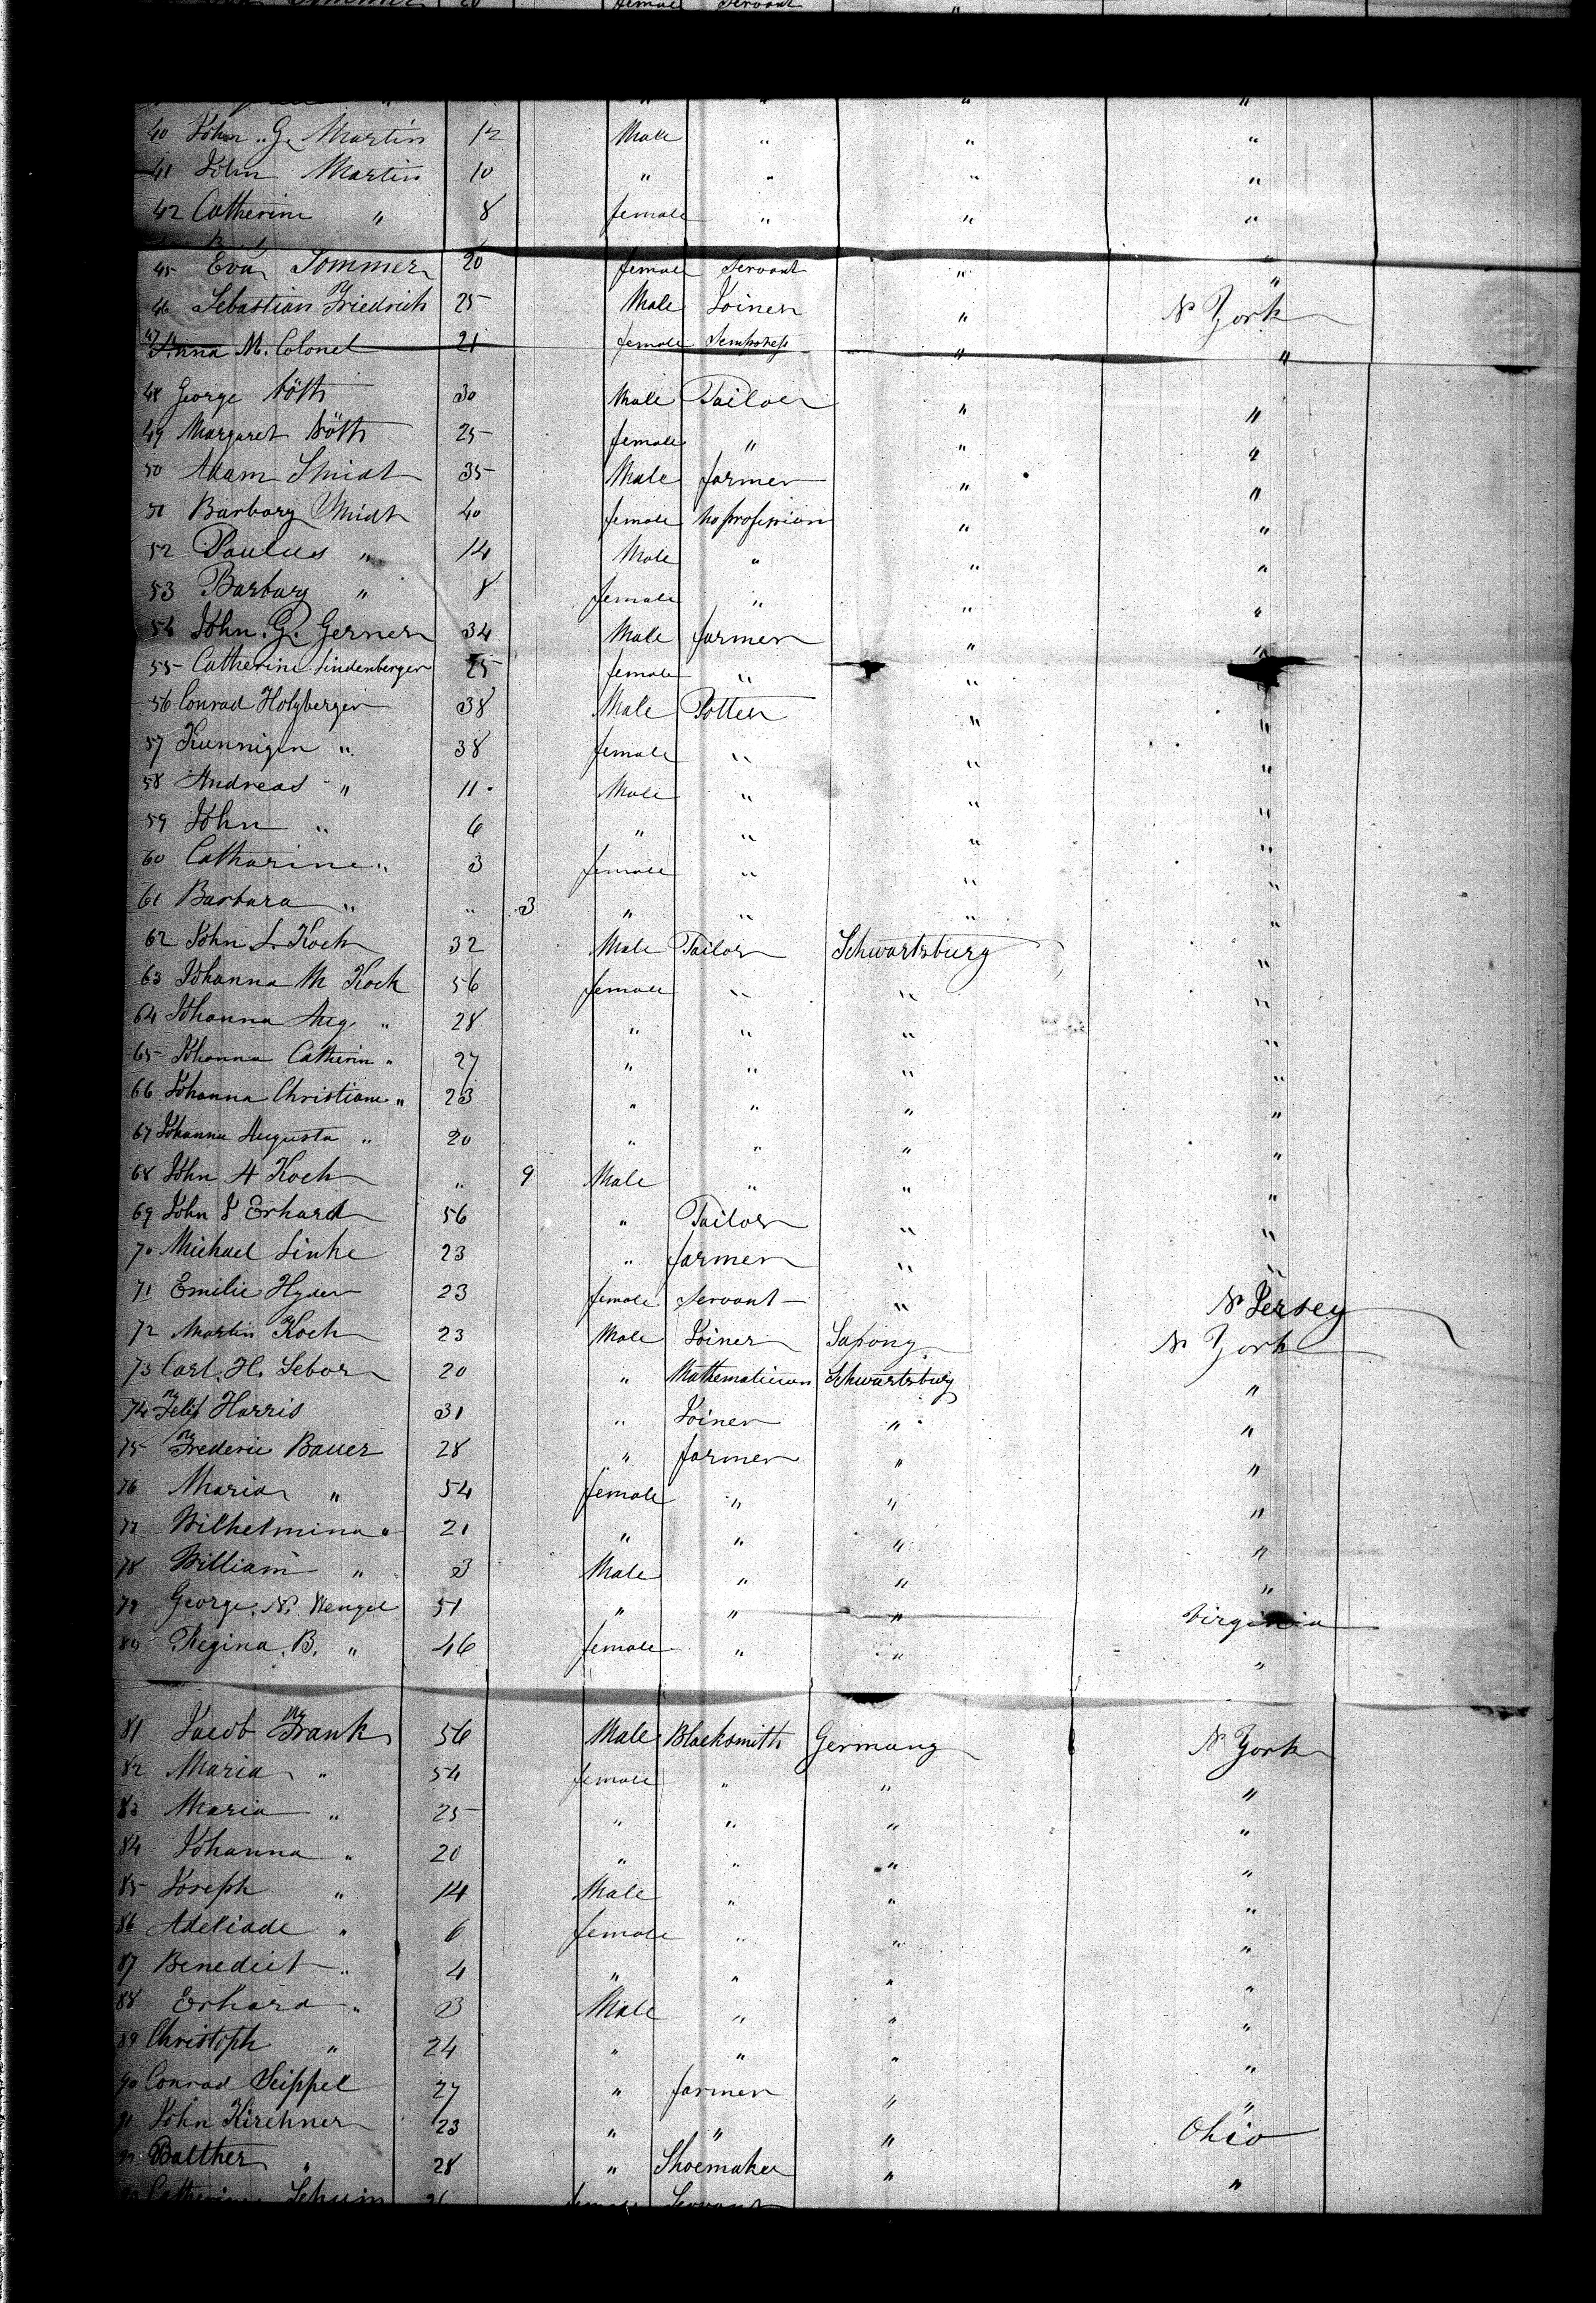 female Servant "
40 John G. Martin 12 Male " " "
41 John Martin 10 " " " "
42 Catherine " 8 female " " "
45 Eva Sommer 20 female Servant " "
46 Sebastian Friedrich 25 Male Joiner " N York
47 Anna M. Colonel 21 female " "
48 George 30 Male Tailor " "
49 Margaret 25 female " " "
50 Adam Smidt 35 Male farmer " "
51 Barbary Smidt 40 female no profession " "
52 Paulus " 14 Male " " "
53 Barbary " 8 female " " "
54 John. G. Gerner 34 Male farmer " "
55 Catherine Lindenberger 25 female " " "
56 Conrad Holzberger 38 Male Potter " "
57 Kunnigen " 38 female " " "
58 Andreas " 11 Male " " "
59 John " 6 " " " "
60 Catharine " 3 female " " "
61 Barbara " " 3 " " " "
62 John L. Koch 32 Male Tailor Schwartsburg "
63 Johanna M Koch 56 female " " "
64 Johanna Aug " 28 " " " "
65 Johanna Catherin " 27 " " " "
66 Johanna Christiane " 23 " " " "
67 Johanna Augusta " 20 " " " "
68 John H Koch " 9 Male " " "
69 John J Erhard 56 " Tailor " "
70 Michael Linke 23 " farmer " "
71 Emilie Hyder 23 female Servant " N Jersey
72 Martin Koch 23 Male Joiner Saxony N York
73 Carl. H. Sebor 20 " Mathematician Schwartsburg "
74 Felix Harris 31 " Joiner " "
75 Frederic Bauer 28 " farmer " "
76 Maria " 54 female " " "
77 Wilhelmina " 21 " " " "
78 William " 3 Male " " "
79 George. N. Wengel 51 " " " Virginia
80 Regina. B. " 46 female " " "
81 Jacob Frank 56 Male Blacksmith Germany N York
82 Maria " 54 female " " "
83 Maria " 25 " " " "
84 Johanna " 20 " " " "
85 Joseph " 14 Male " " "
86 Adeliade " 6 female " " "
87 Benedict " 4 " " " "
88 Erhard " 3 Male " " "
89 Christoph " 24 " " " "
90 Conrad Seippel 27 " farmer " "
91 John Kirchner 23 " " " Ohio
92 Balther " 28 " Shoemaker " "
Servant